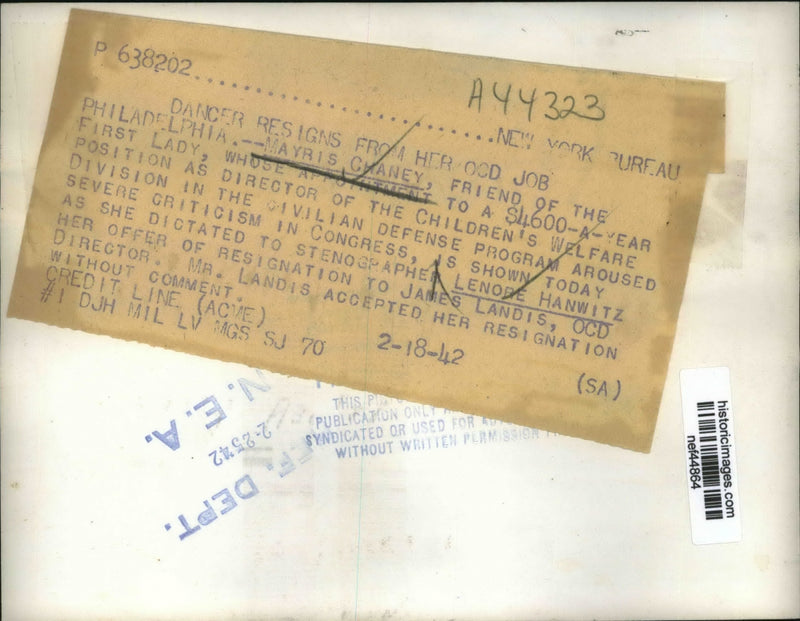 P 638202
A44323
NEW YORK BUREAU
DANCER RESIGNS FROM HER OCD JOB
PHILADELPHIA.--MAYRIS CHANEY, FRIEND OF THE
FIRST LADY, WHOSE APPOINTMENT TO A $4600-A-YEAR
POSITION AS DIRECTOR OF THE CHILDREN'S WELFARE
DIVISION IN THE CIVILIAN DEFENSE PROGRAM AROUSED
SEVERE CRITICISM IN CONGRESS, IS SHOWN TODAY
AS SHE DICTATED TO STENOGRAPHER LENORE HANWITZ
HER OFFER OF RESIGNATION TO JAMES LANDIS, OCD
DIRECTOR. MR. LANDIS ACCEPTED HER RESIGNATION
WITHOUT COMMENT.
CREDIT LINE (ACME)
#1 DJH MIL LV MGS SJ 70 2-18-42
(SA)
THIS
PUBLICATION ONLY
SYNDICATED OR USED FOR
WITHOUT WRITTEN PERMISSION
N.E.A.
2-25-42
REF. DEPT.
historicimages.com
nef44864